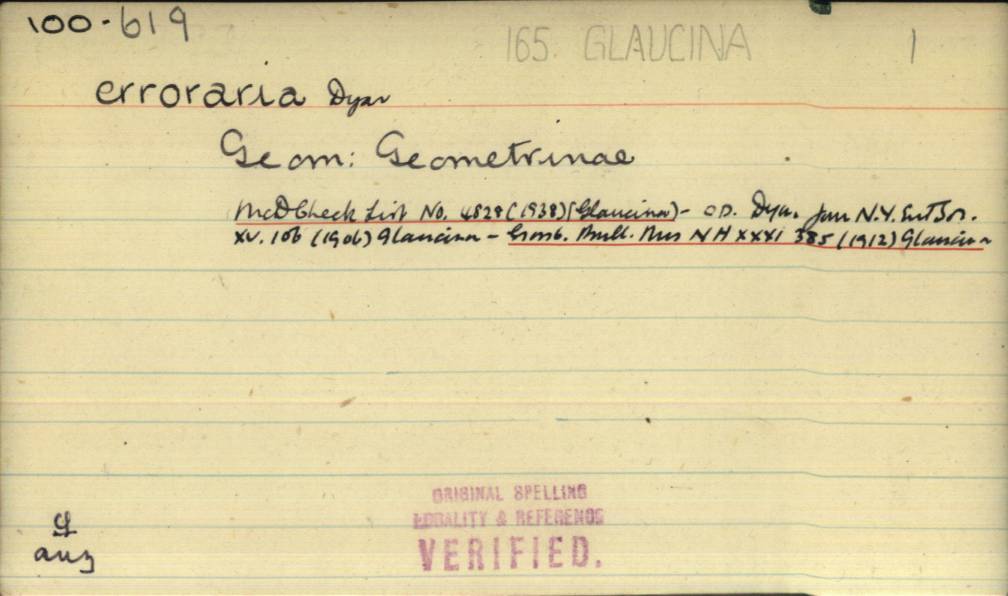 100-619
165. GLAUCINA 1
erroraria Dyar
Geom: Geometrinae
McD Check List No. 4828 (1938) (Glaucina) - OD. Dyar. Jour N.Y. Ent Soc.
XV. 106 (1906) Glaucina - Grosb. Bull. Mus NH XXXI 385 (1912) Glaucina
ORIGINAL SPELLING
LOCALITY & REFERENCE
VERIFIED.